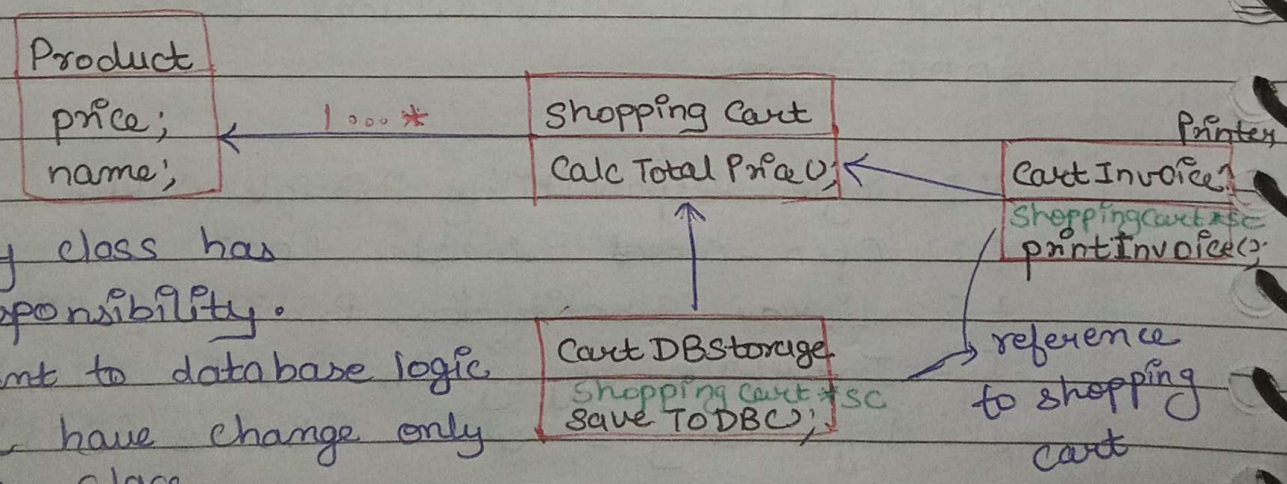 Product
price;
name;
1...*
Shopping Cart
Calc Total Price();
Printer
Cart Invoice
Shopping Cart *sc
print Invoice();
class has
Cart DB Storage
Shopping Cart *sc
Save To DB();
reference
to shopping
cart
to database logic
have change only
class